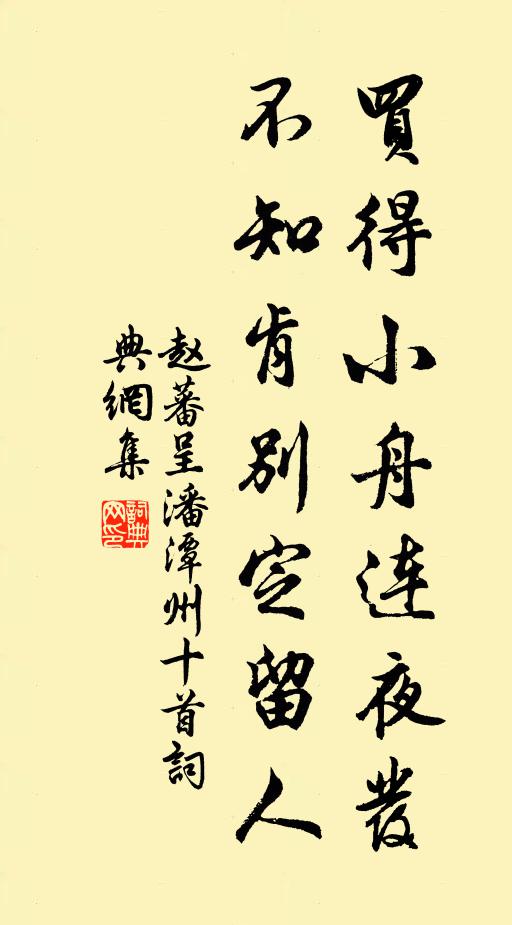 買得小舟連夜發
不知肯別定留人
赵蕃呈潘潭州十首詞
典網集
詞典
网印